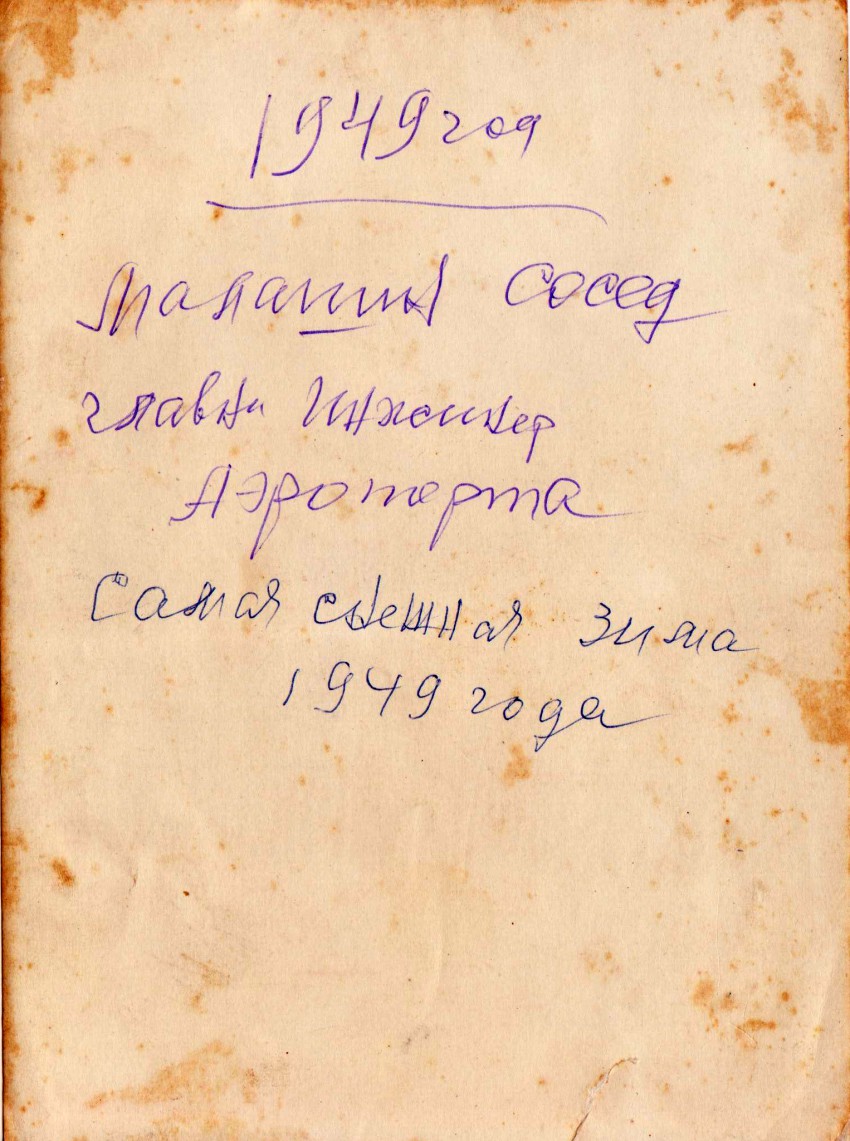 1949 год
сосед
главн Инженер
Аэропорта
Самая снежная зима
1949 года